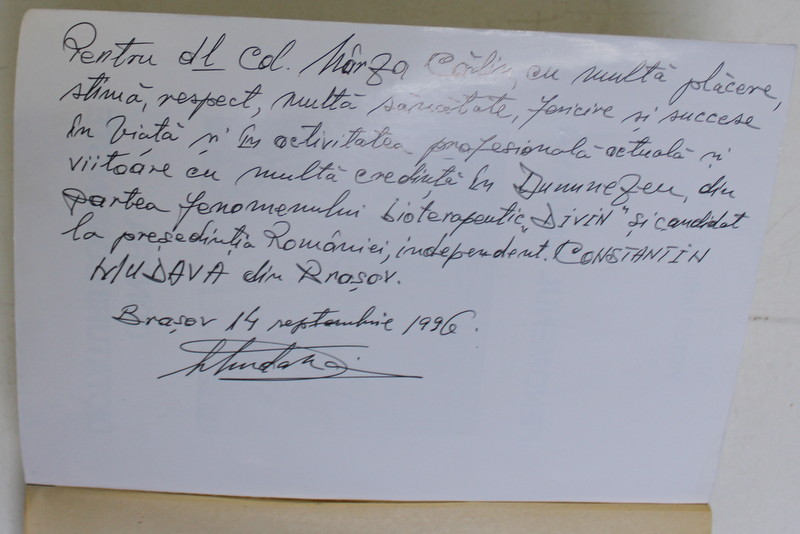 Pentru dl col. Mârza Călin, cu multă plăcere,
stimă, respect, multă sănătate, fericire și succese
în viață și în activitatea profesională actuală și
viitoare cu multă credință în Dumnezeu, din
partea fenomenului bioterapeutic „DIVIN” și candidat
la președinția României, independent. CONSTANTIN
MUDAVA din Brașov.
Brașov 14 septembrie 1996.
Mudava